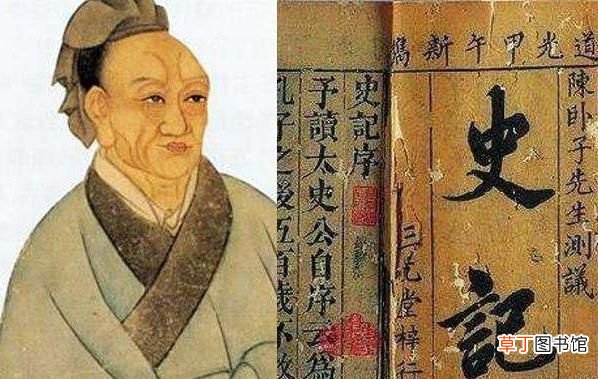 道光甲午新鐫
陳卧子先生測議
史記
三元堂梓行
史記序
予讀太史公自序云為
孔子之後五百歲不敢
草丁图书馆